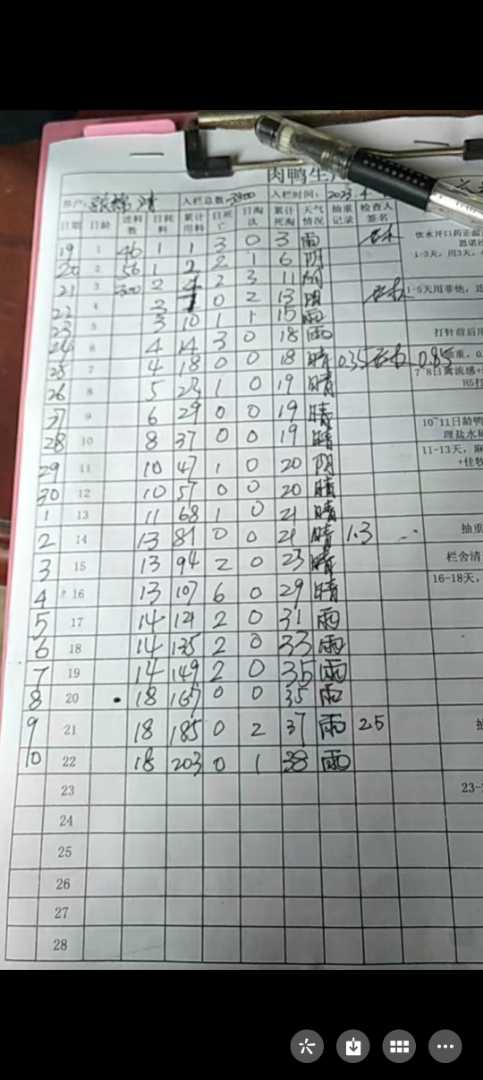 肉鸭生
入栏总数 3300 入栏时间: 2023.4
日期 日龄 进料数 日耗料 累计用料 日死亡 日淘汰 累计死淘 天气情况 抽重记录 检查人签名
19 1 46 1 1 3 0 3 雨
20 2 56 1 2 2 1 6 阴
21 3 300 2 4 2 3 11 阴
22 4 2 7 0 2 13
23 5 3 10 1 1 15 雨
24 6 4 14 3 0 18 雨
25 7 4 18 0 0 18 晴 0.35 0.85
26 8 5 23 1 0 19 晴
27 9 6 29 0 0 19 晴
28 10 8 37 0 0 19 晴
29 11 10 47 1 0 20 阴
30 12 10 57 0 0 20 晴
1 13 11 68 1 0 21 晴
2 14 13 81 0 0 21 晴 1.3
3 15 13 94 2 0 23 晴
4 16 13 107 6 0 29 晴
5 17 14 121 2 0 31 雨
6 18 14 135 2 0 33 雨
7 19 14 149 2 0 35 雨
8 20 18 167 0 0 35 雨
9 21 18 185 0 2 37 雨 2.5
10 22 18 203 0 1 38 雨
23
24
25
26
27
28
饮水开口药
1-3天，用3天，
1-5天用
打针前后用
7-8日禽流感+
H5打
10~11日龄鸭
理盐水
11-13天，
+佳
抽重
栏舍清
16-18天，
23-